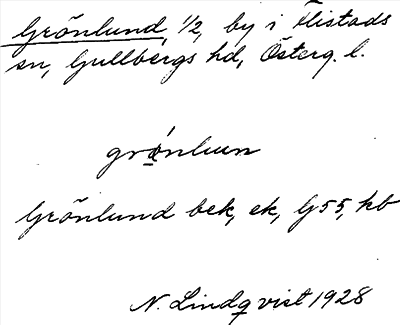 Grönlund, 1/2, by i Flistads
sn, Gullbergs hd, Österg. l.
grǿnlun
Grönlund bek, ek, G55, kb
N. Lindqvist 1928